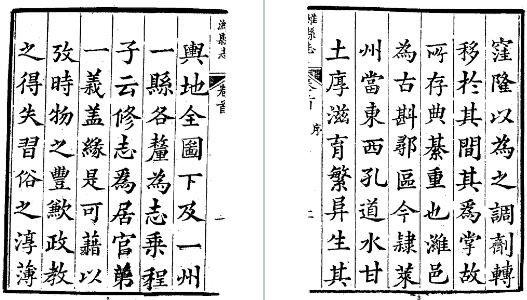 濰縣志
卷首
一
輿地全圖下及一州
一縣各釐為志乘程
子云修志爲居官苐
一義盖緣是可藉以
攷時物之豐歉政教
之得失習俗之淳薄
窪隆以為之調劑轉
移於其間其爲掌故
所存典綦重也濰邑
為古斟鄩區今隸萊
州當東西孔道水甘
土厚滋育繁昇生其
濰縣志
序